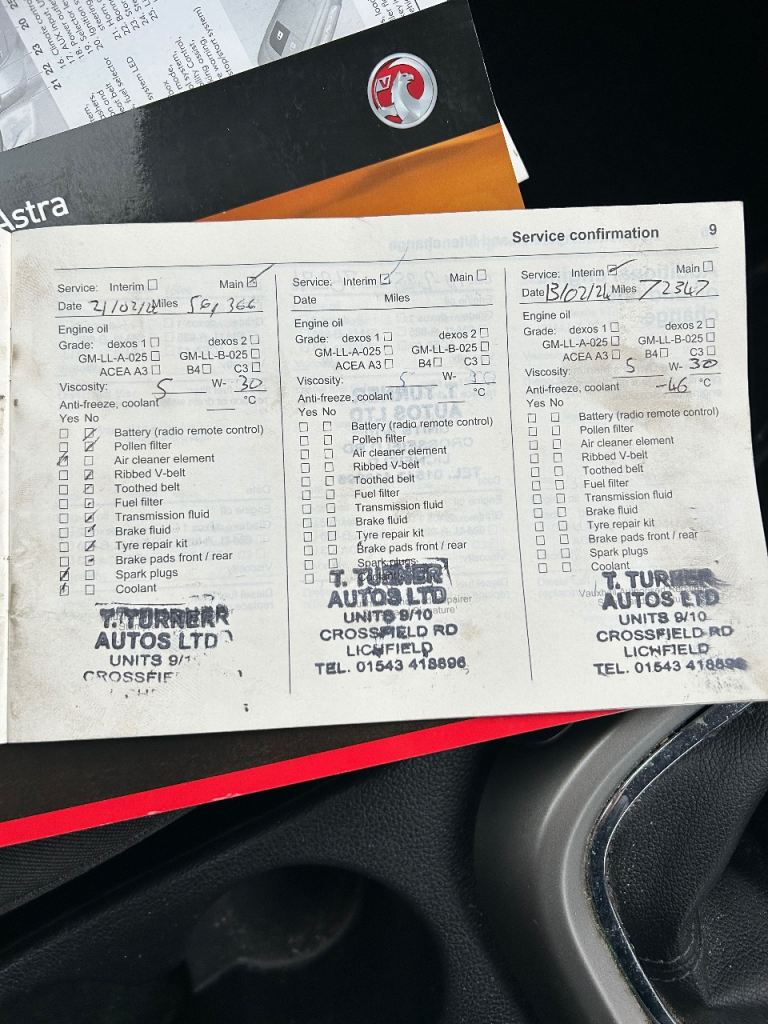 Astra
Service confirmation 9
Service: Interim Main
Date Miles 56,366
Engine oil
Grade: dexos 1 dexos 2
GM-LL-A-025 GM-LL-B-025
ACEA A3 B4 C3
Viscosity: 5 W- 30
Anti-freeze, coolant °C
Yes No
Battery (radio remote control)
Pollen filter
Air cleaner element
Ribbed V-belt
Toothed belt
Fuel filter
Transmission fluid
Brake fluid
Tyre repair kit
Brake pads front / rear
Spark plugs
Coolant
T. TURNER
AUTOS LTD
UNITS 9/1
CROSSFIE
Service: Interim Main
Date Miles
Engine oil
Grade: dexos 1 dexos 2
GM-LL-A-025 GM-LL-B-025
ACEA A3 B4 C3
Viscosity: 5 W- 30
Anti-freeze, coolant °C
Yes No
Battery (radio remote control)
Pollen filter
Air cleaner element
Ribbed V-belt
Toothed belt
Fuel filter
Transmission fluid
Brake fluid
Tyre repair kit
Brake pads front / rear
Spark plugs
Coolant
T. TURNER
AUTOS LTD
UNITS 9/10
CROSSFIELD RD
LICHFIELD
TEL. 01543 418896
Service: Interim Main
Date 13/02/24 Miles 72347
Engine oil
Grade: dexos 1 dexos 2
GM-LL-A-025 GM-LL-B-025
ACEA A3 B4 C3
Viscosity: 5 W- 30
Anti-freeze, coolant -46 °C
Yes No
Battery (radio remote control)
Pollen filter
Air cleaner element
Ribbed V-belt
Toothed belt
Fuel filter
Transmission fluid
Brake fluid
Tyre repair kit
Brake pads front / rear
Spark plugs
Coolant
T. TURNER
AUTOS LTD
UNITS 9/10
CROSSFIELD RD
LICHFIELD
TEL. 01543 418896